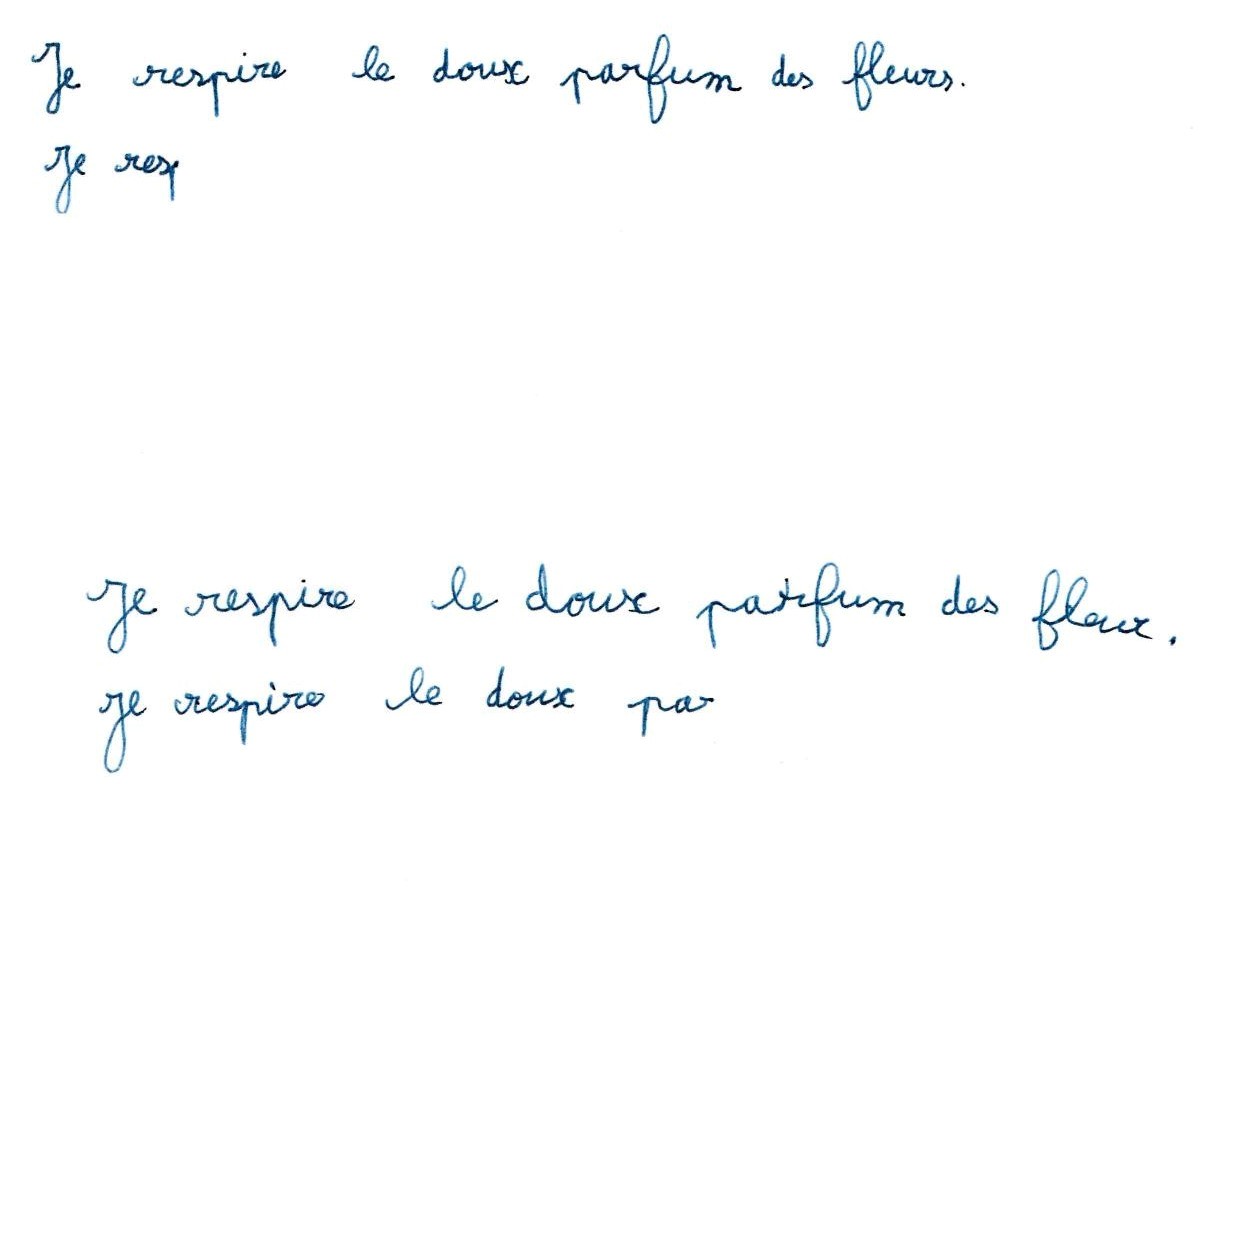 Je respire le doux parfum des fleurs.
Je resp
Je respire le doux parfum des fleux.
Je respire le doux par